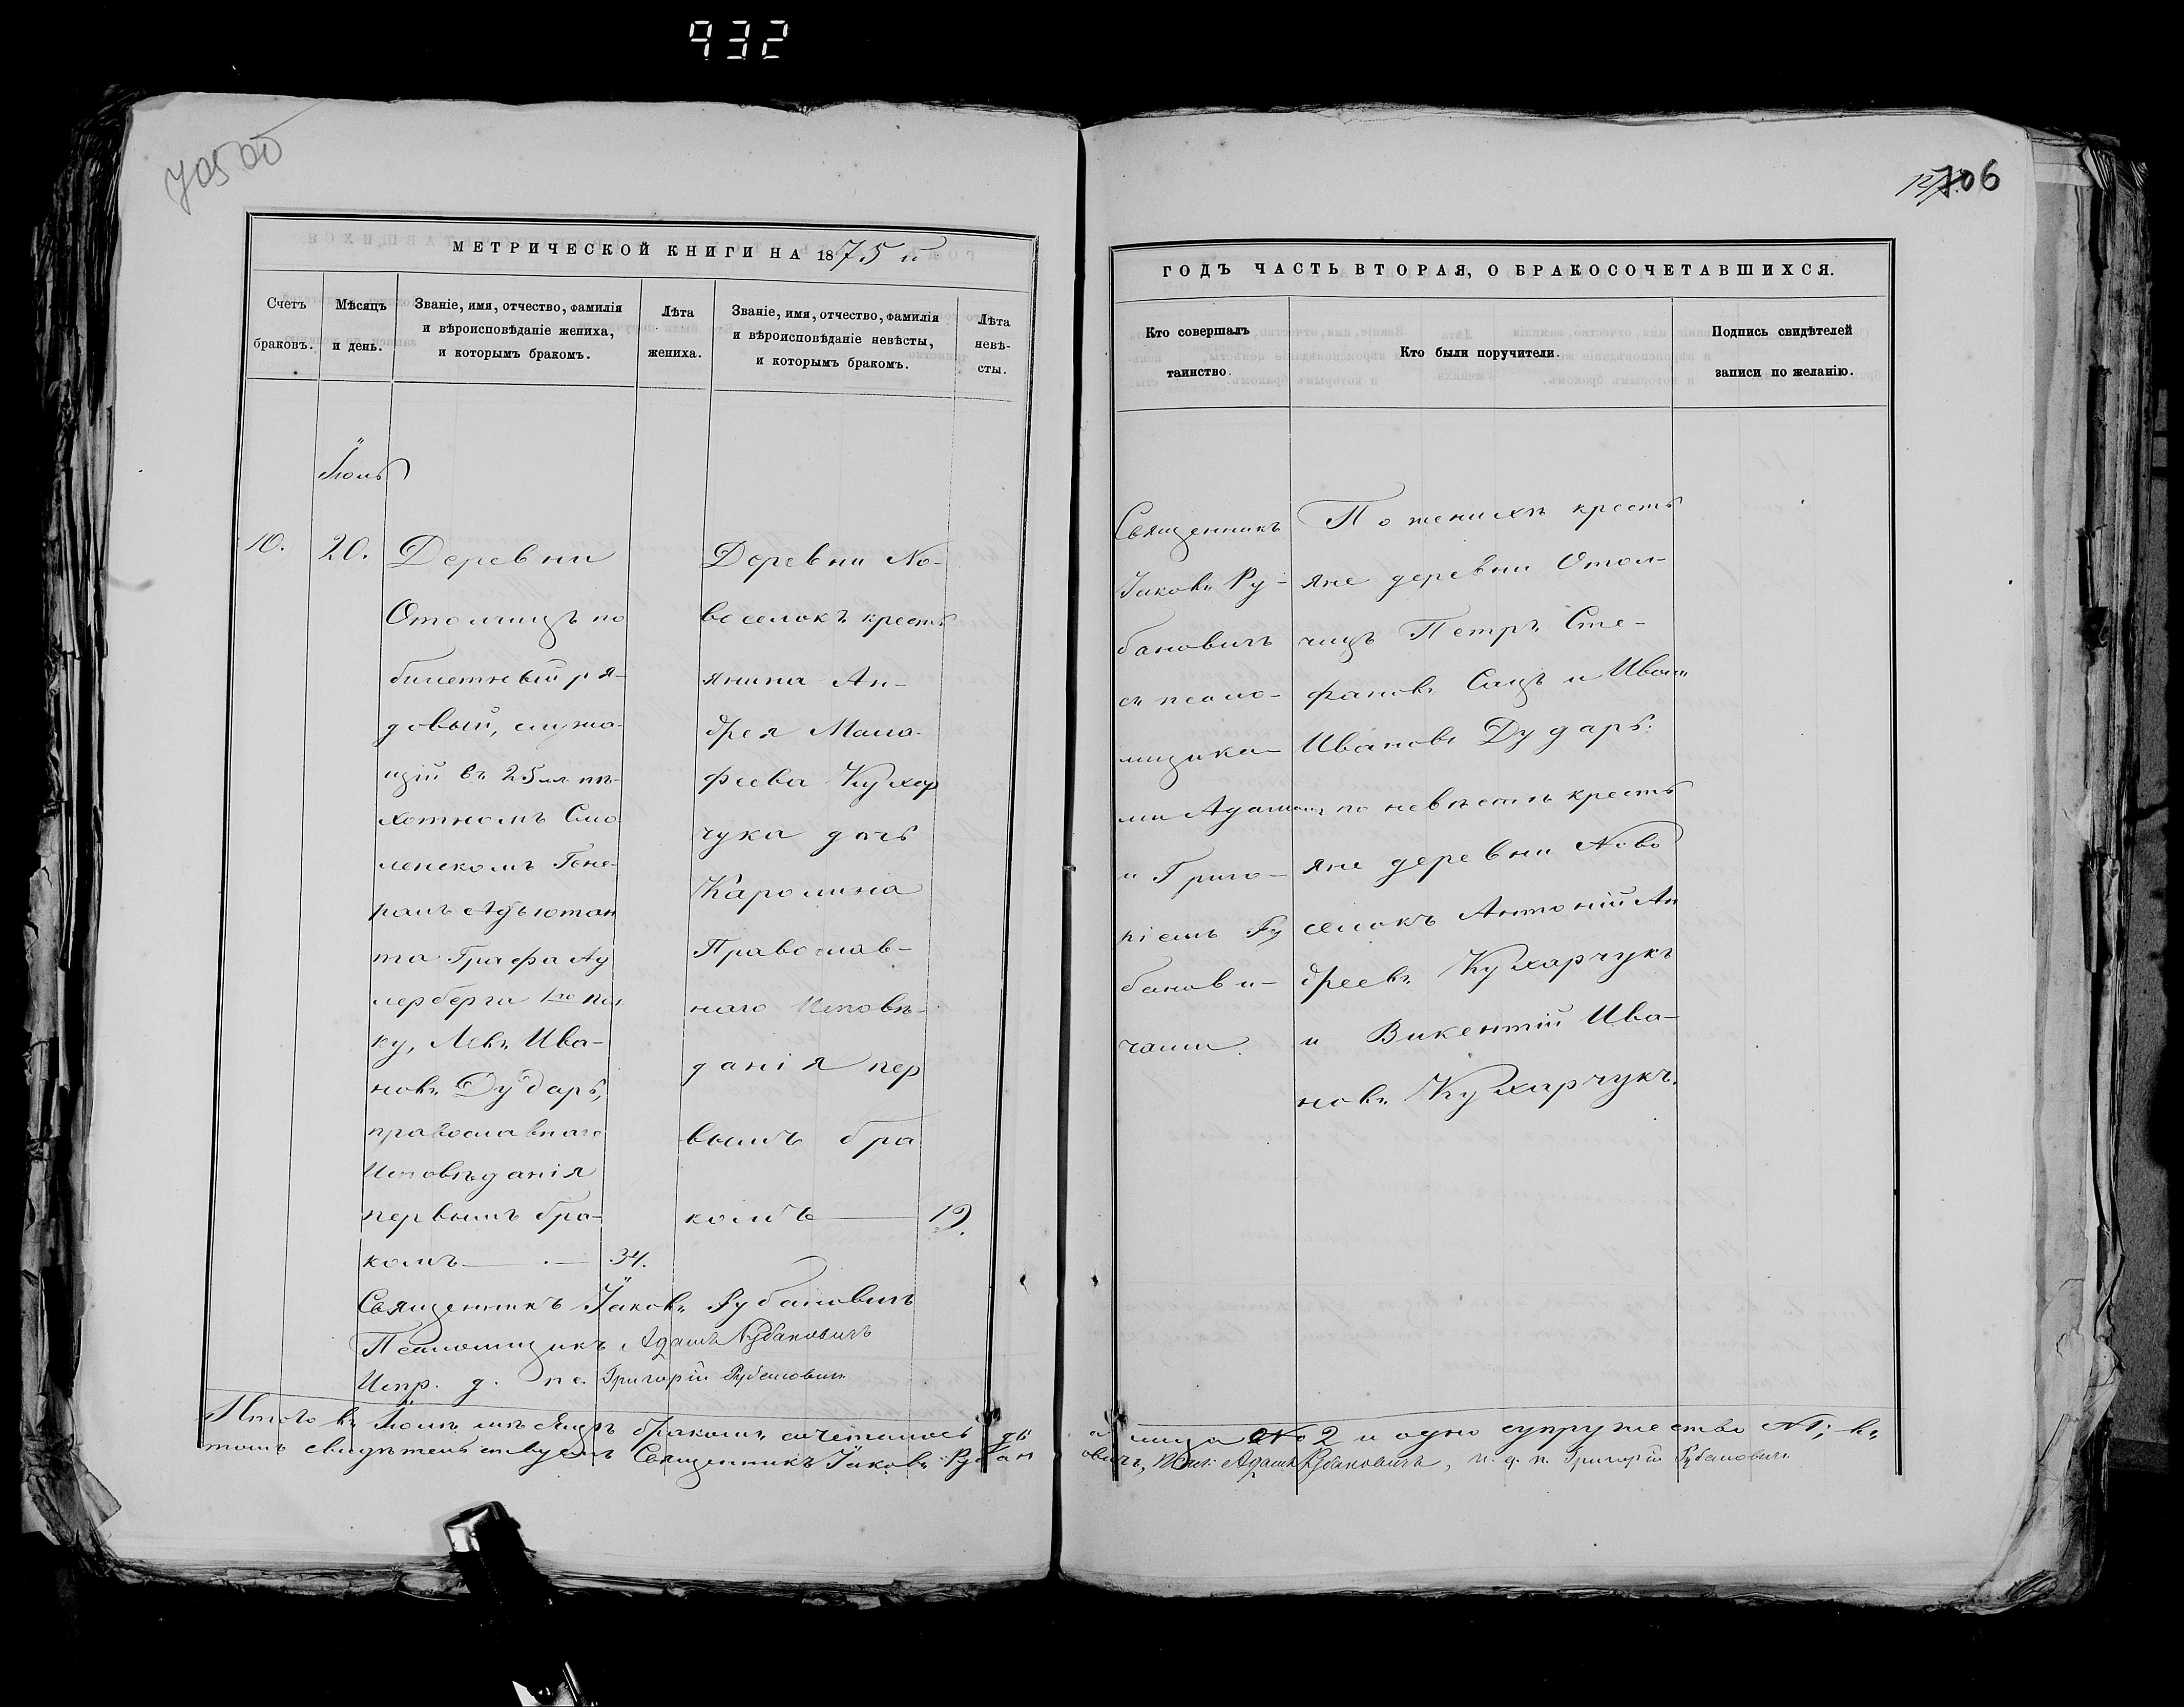 932
70500
706
МЕТРИЧЕСКОЙ КНИГИ НА 1875 й
Счетъ браковъ.
Мѣсяцъ и день.
Званіе, имя, отчество, фамилія
и вѣроисповѣданіе жениха,
и которымъ бракомъ.
Лѣта жениха.
Званіе, имя, отчество, фамилія
и вѣроисповѣданіе невѣсты,
и которымъ бракомъ.
Лѣта
невѣ-
сты.
Іюль
10.
20.
Деревни
Отолчицъ по
билетный ря-
довый, служа-
щій въ 25мъ пѣ-
хотномъ Смо
ленскомъ Гене-
ралъ Адъютан
та Графа Ад
лерберга 1го пол
ку, Левъ Ива-
новъ Дударь,
православнаго
Исповѣданія
первымъ бра-
комъ
34.
Деревни Но-
воселокъ кресть
янина Ан-
дрея Мато-
феева Кухар
чука дочь
Каролина
Православ-
наго Исповѣ-
данія пер
вымъ бра
комъ
19.
Священникъ Іаковъ Рубановичъ
Псаломщикъ Адамъ Рубановичъ
Испр. д. пс. Григорій Рубановичъ
ГОДЪ ЧАСТЬ ВТОРАЯ, О БРАКОСОЧЕТАВШИХСЯ.
Кто совершалъ
таинство.
Кто были поручители.
Подпись свидѣтелей
записи по желанію.
Священникъ
Іаковъ Ру-
бановичъ
съ псало-
мщика-
ми Адамомъ
и Григо-
ріемъ Ру
банови-
чами.
По женихѣ кресть
яне деревни Отол-
чицъ Петръ Сте-
фановъ Сацъ и Иванъ
Ивановъ Дударь.
по невѣстѣ кресть
яне деревни Ново
селокъ Антоній Ан
дреевъ Кухарчукъ
и Викентій Ива-
новъ Кухарчукъ.
Итого въ Іюлѣ мѣсяцѣ бракомъ сочеталось два лица № 2 и одно супружество № 1; въ
томъ свидѣтельствуемъ Священникъ Іаковъ Рубановичъ, Адамъ Рубановичъ, и. д. п. Григорій Рубановичъ